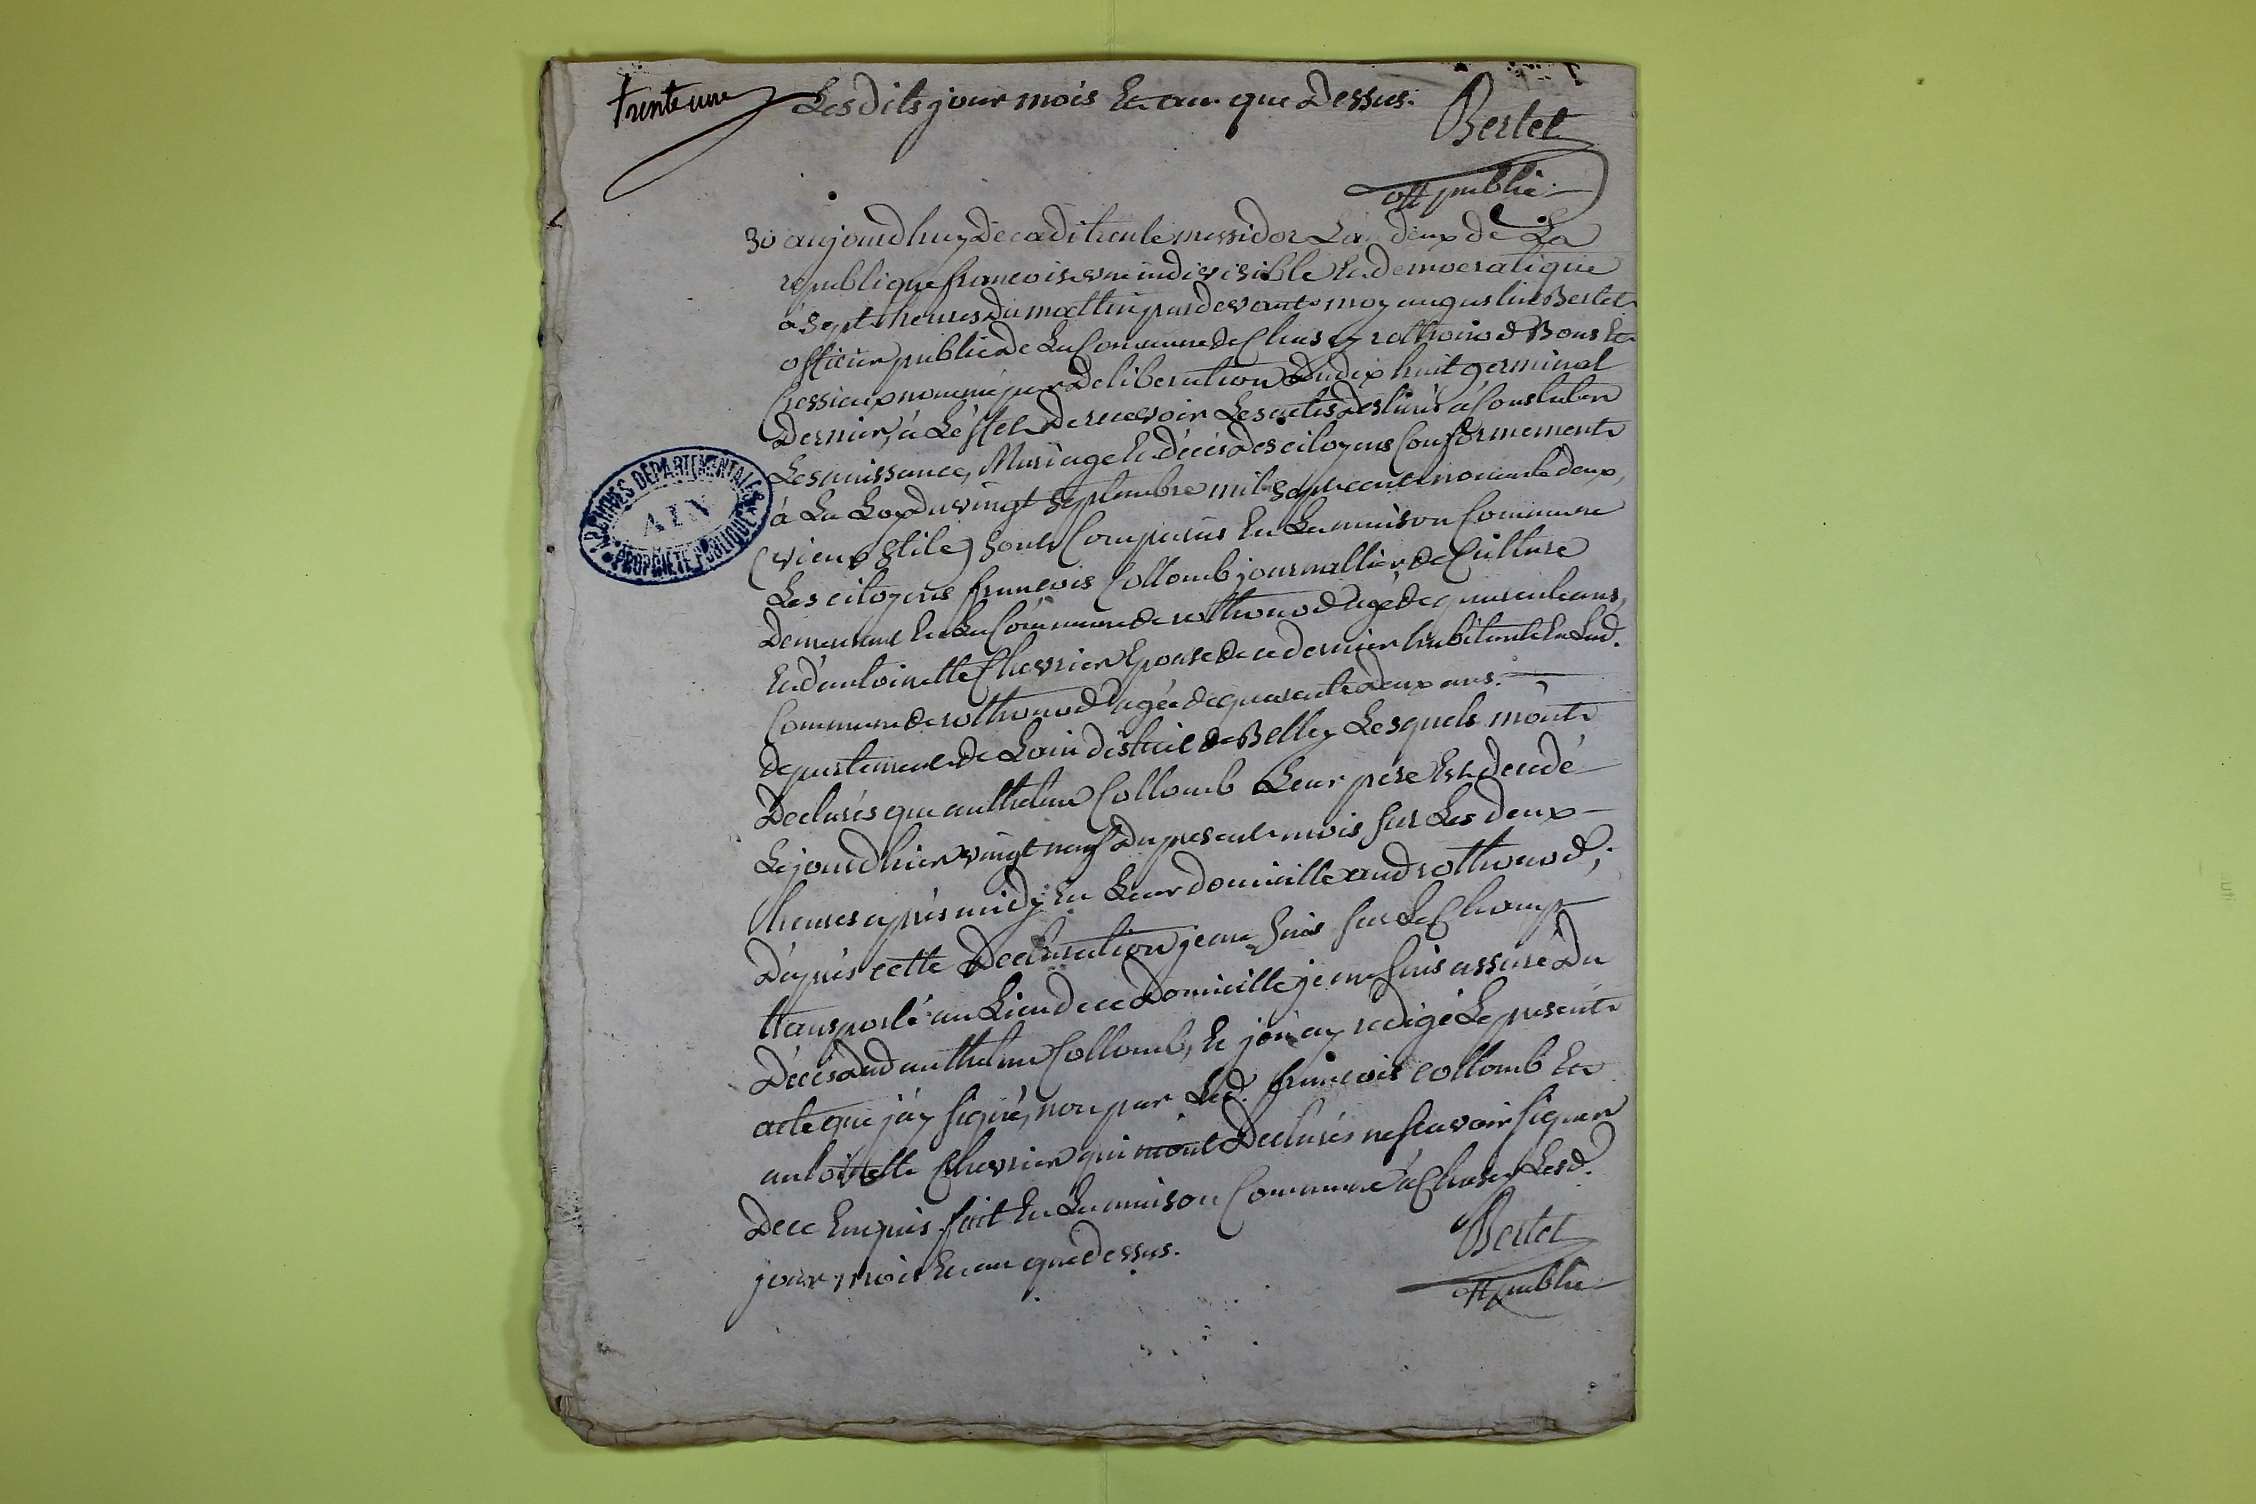 trente une
Les dits jour mois et an que Dessus.
Bertet
off public
30 aujourdhuy Decadi trente messidor L'an deux de La
republique francoise une indivisible et democratique
à Sept heures du mattin par devant moy augustin Bertet
officier public de La Commune de Chasey rothonod Bons et
Cressieux nommé par Deliberation du dix huit germinal
Dernier, à L'effet De recevoir Les actes destinés à Constater
Les naissance, Mariage et décés des citoyens Conformement
à La Loy du vingt Septembre mil Sept cent nonante deux,
(vieux Stile) Sont Comparus En La maison Commune
Les citoyens francois Collomb journallier de Culture
Demeurant En La Commune de rothonod agé de quarente ans,
Et d'antoinette Chevrier Epouse de ce dernier habitante En Lad.
Commune de rothonod agée de quarente deux ans.
departement de Lain district de Belley Lesquels m'ont
Declarés que anthelme Collomb Leur pere Est decedé
Le jour d'hier vingt neuf Du present mois sur Les deux
heures après midy En Leur domicille aud rothonod;
D'après cette Declaration je me Suis sur Le Champ
transporté au Lieu de ce Domicille je me suis assuré Du
Décés dud anthelme Collomb, et j'en ay redigé Le present
acte que j'ay signé, non par Led. francois collomb et
antoinette Chevrier qui m'ont Declarés ne scavoir signer
De ce Enquis. fait En La maison Commune à Chasey Lesd.
jour mois et an que dessus.
Bertet
off public
ARCHIVES DEPARTEMENTALES
AIN
PROPRIETE PUBLIQUE